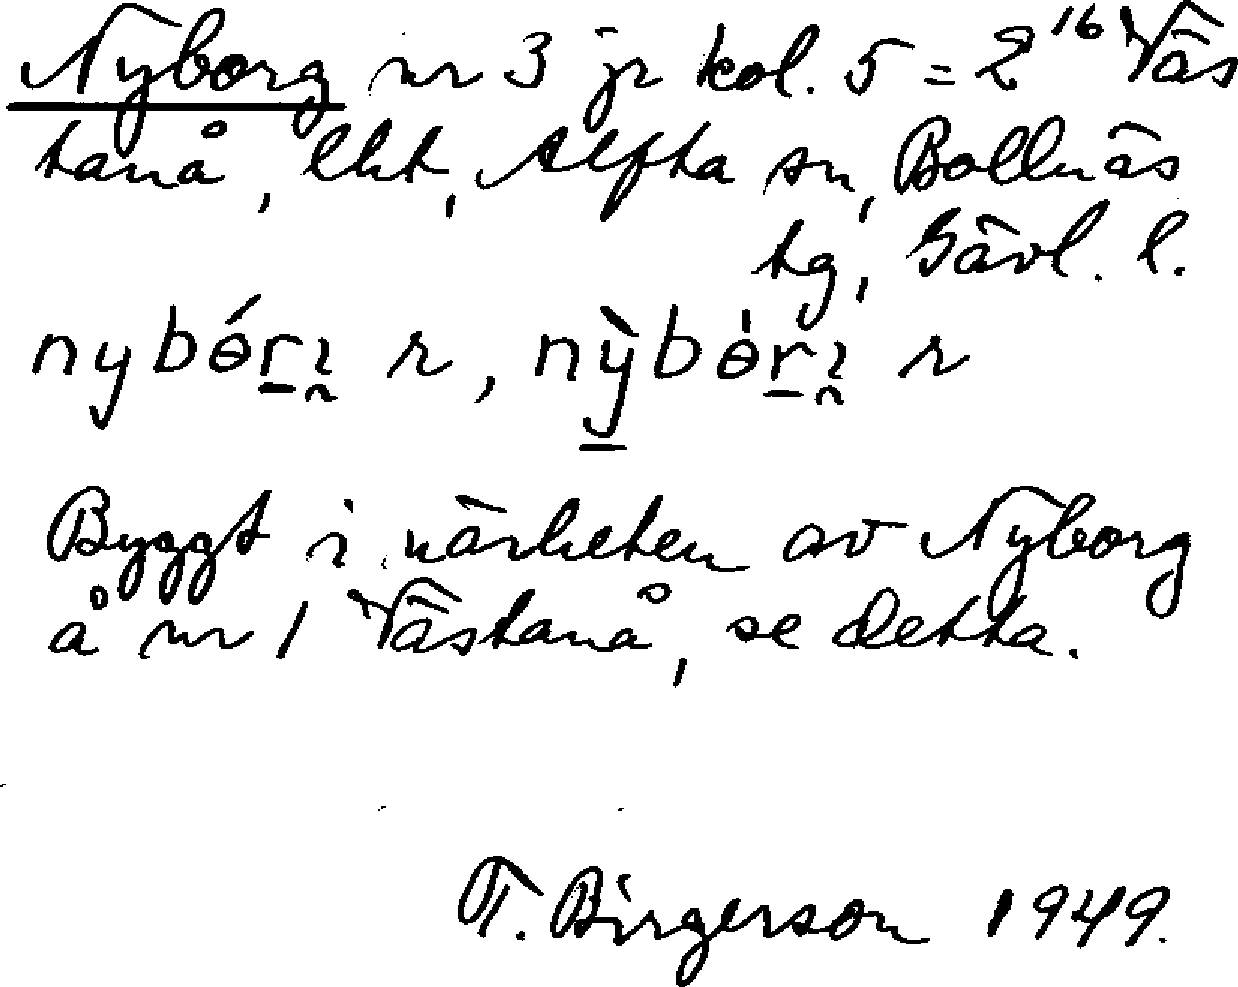 Nyborg nr 3 jr kol. 5 = 2¹⁶ Väs
tanå, lht, Alfta sn, Bollnäs
tg, Gävl. l.
Byggt i närheten av Nyborg
å nr 1 Västanå, se detta.
T. Birgerson 1949.